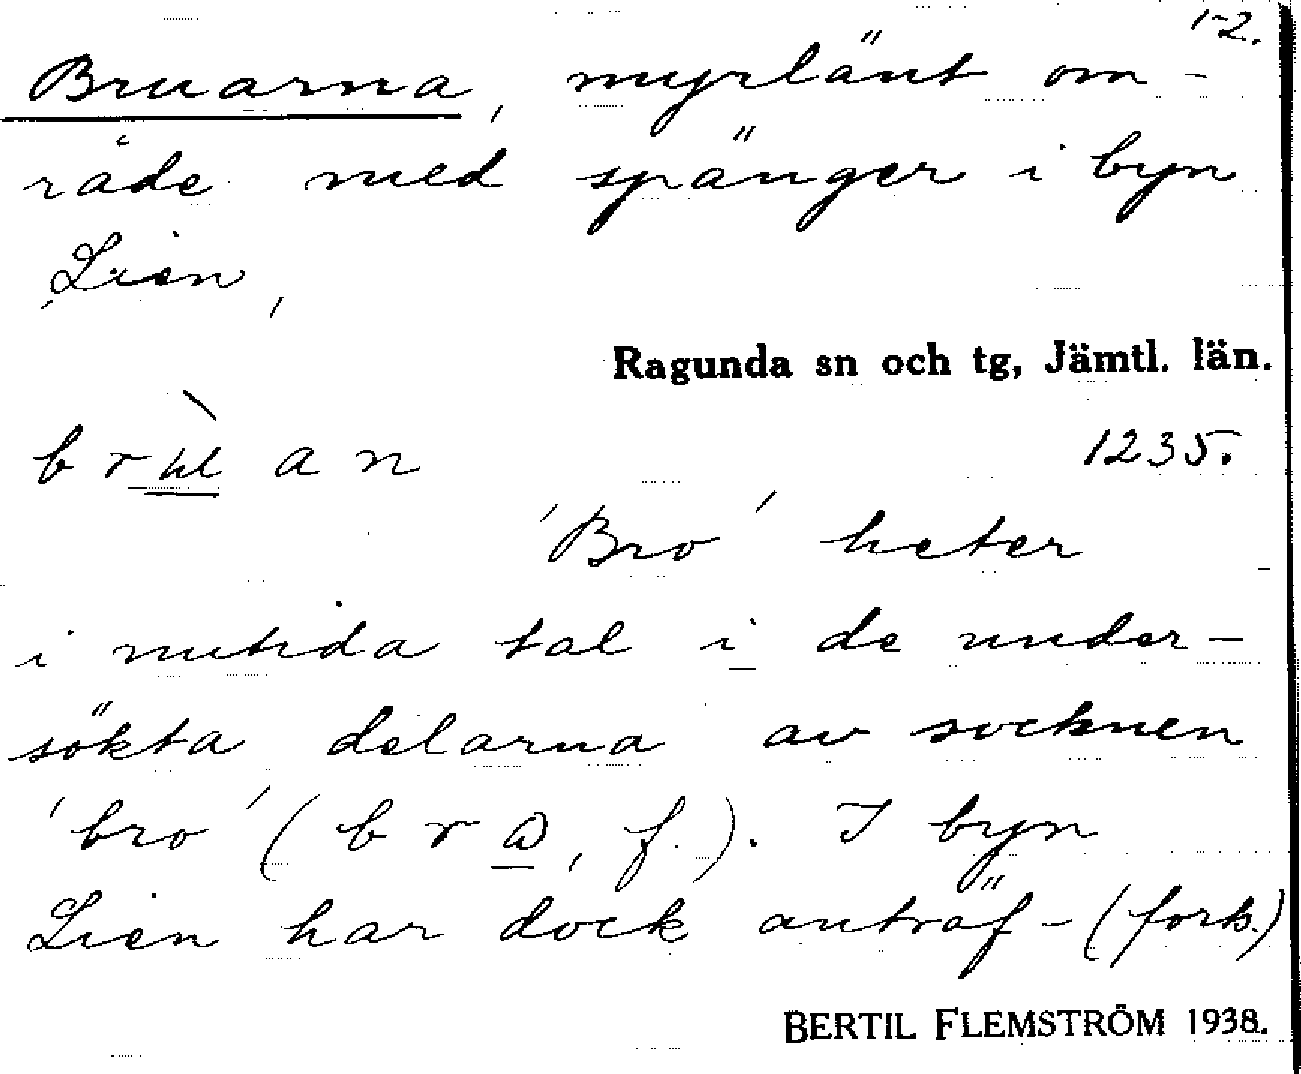 1-2.
Bruarna, myrlänt om-
råde med spänger i byn
Lien,
Ragunda sn och tg, Jämtl. län.
1235.
'Bro' heter
i nutida tal i de under-
sökta delarna av socknen
'bro' (b r, f.). I byn
Lien har dock anträf- (forts.)
BERTIL FLEMSTRÖM 1938.